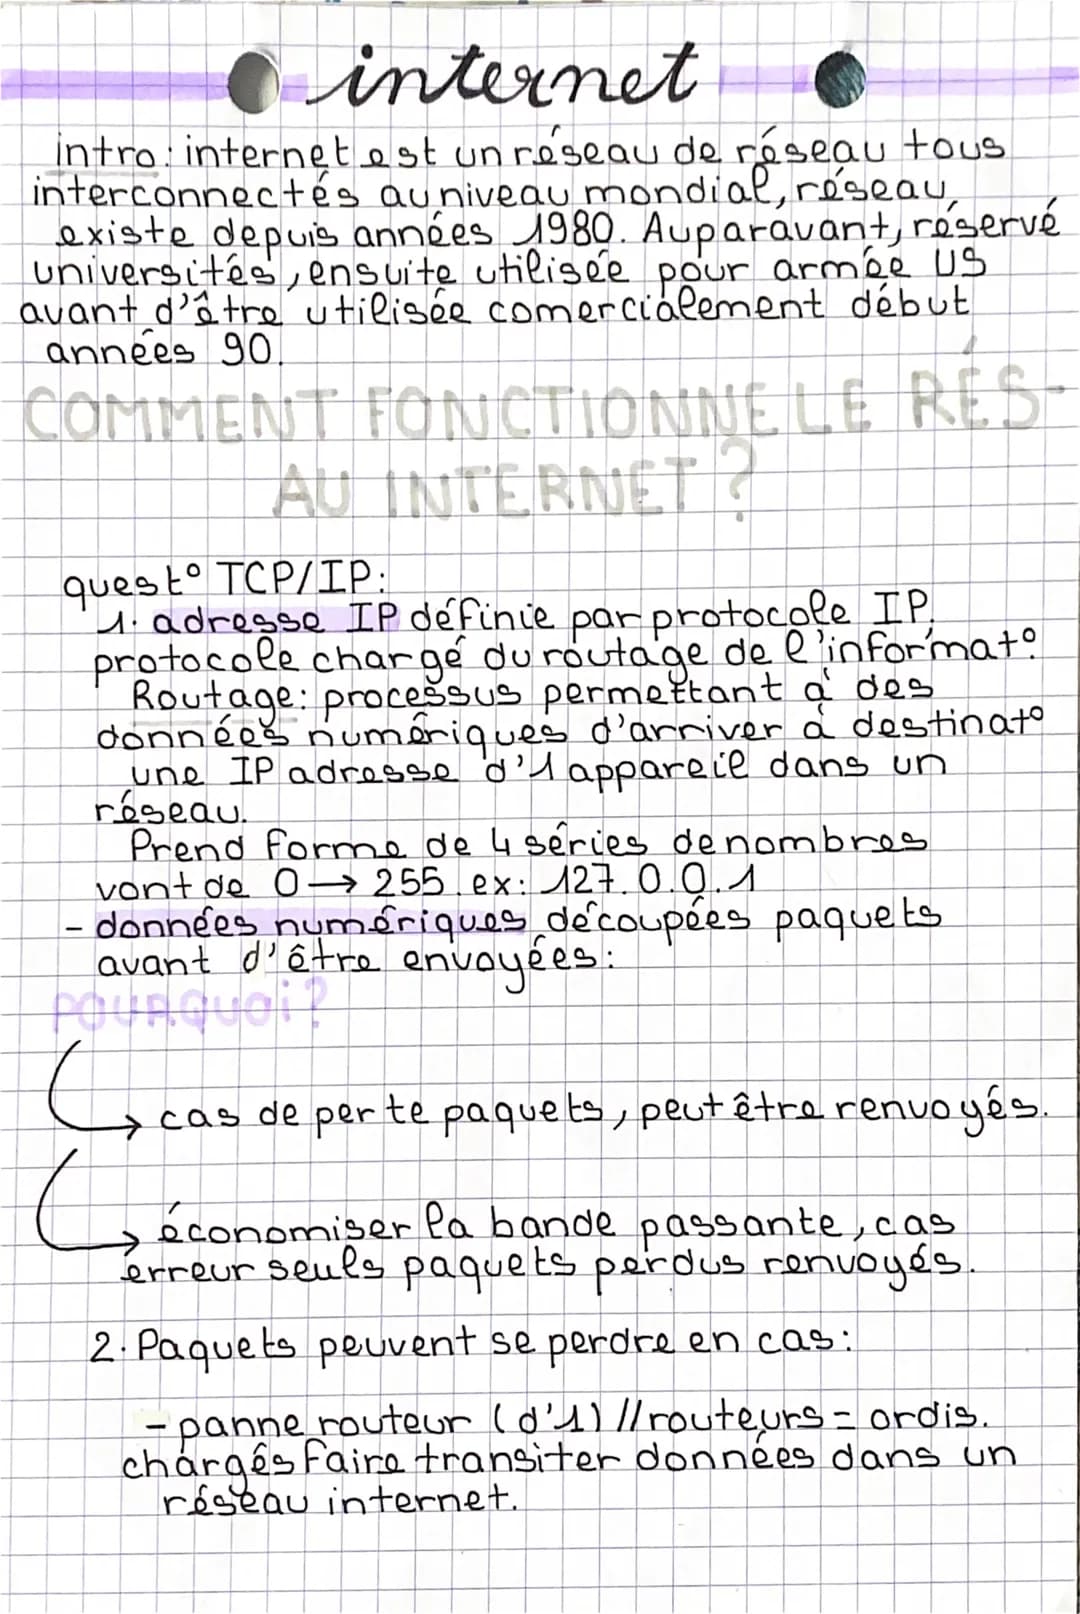 internet
intro: internet est un réseau de réseau tous
interconnectés au niveau mondial, réseau
existe depuis années 1980. Auparavant, réservé
universités, ensuite utilisée pour armée US
avant d'être utilisée comercialement début
années 90.
COMMENT FONCTIONNE LE RÉS-
AU INTERNET ?
quest° TCP/IP:
1. adresse IP définie par protocole IP.
protocole chargé du routage de l'informat°
Routage: processus permettant à des
données numériques d'arriver à destinat°
une IP adresse d'1 appareil dans un
réseau.
Prend forme de 4 séries de nombres
vont de 0 → 255. ex: 127.0.0.1
- données numériques découpées paquets
avant d'être envoyées:
POURQUOi?
→ cas de perte paquets, peut être renvoyés.
→ économiser la bande passante, cas
erreur seuls paquets perdus renvoyés.
2. Paquets peuvent se perdre en cas:
- panne routeur (d'1) // routeurs = ordis.
chargés faire transiter données dans un
réseau internet.